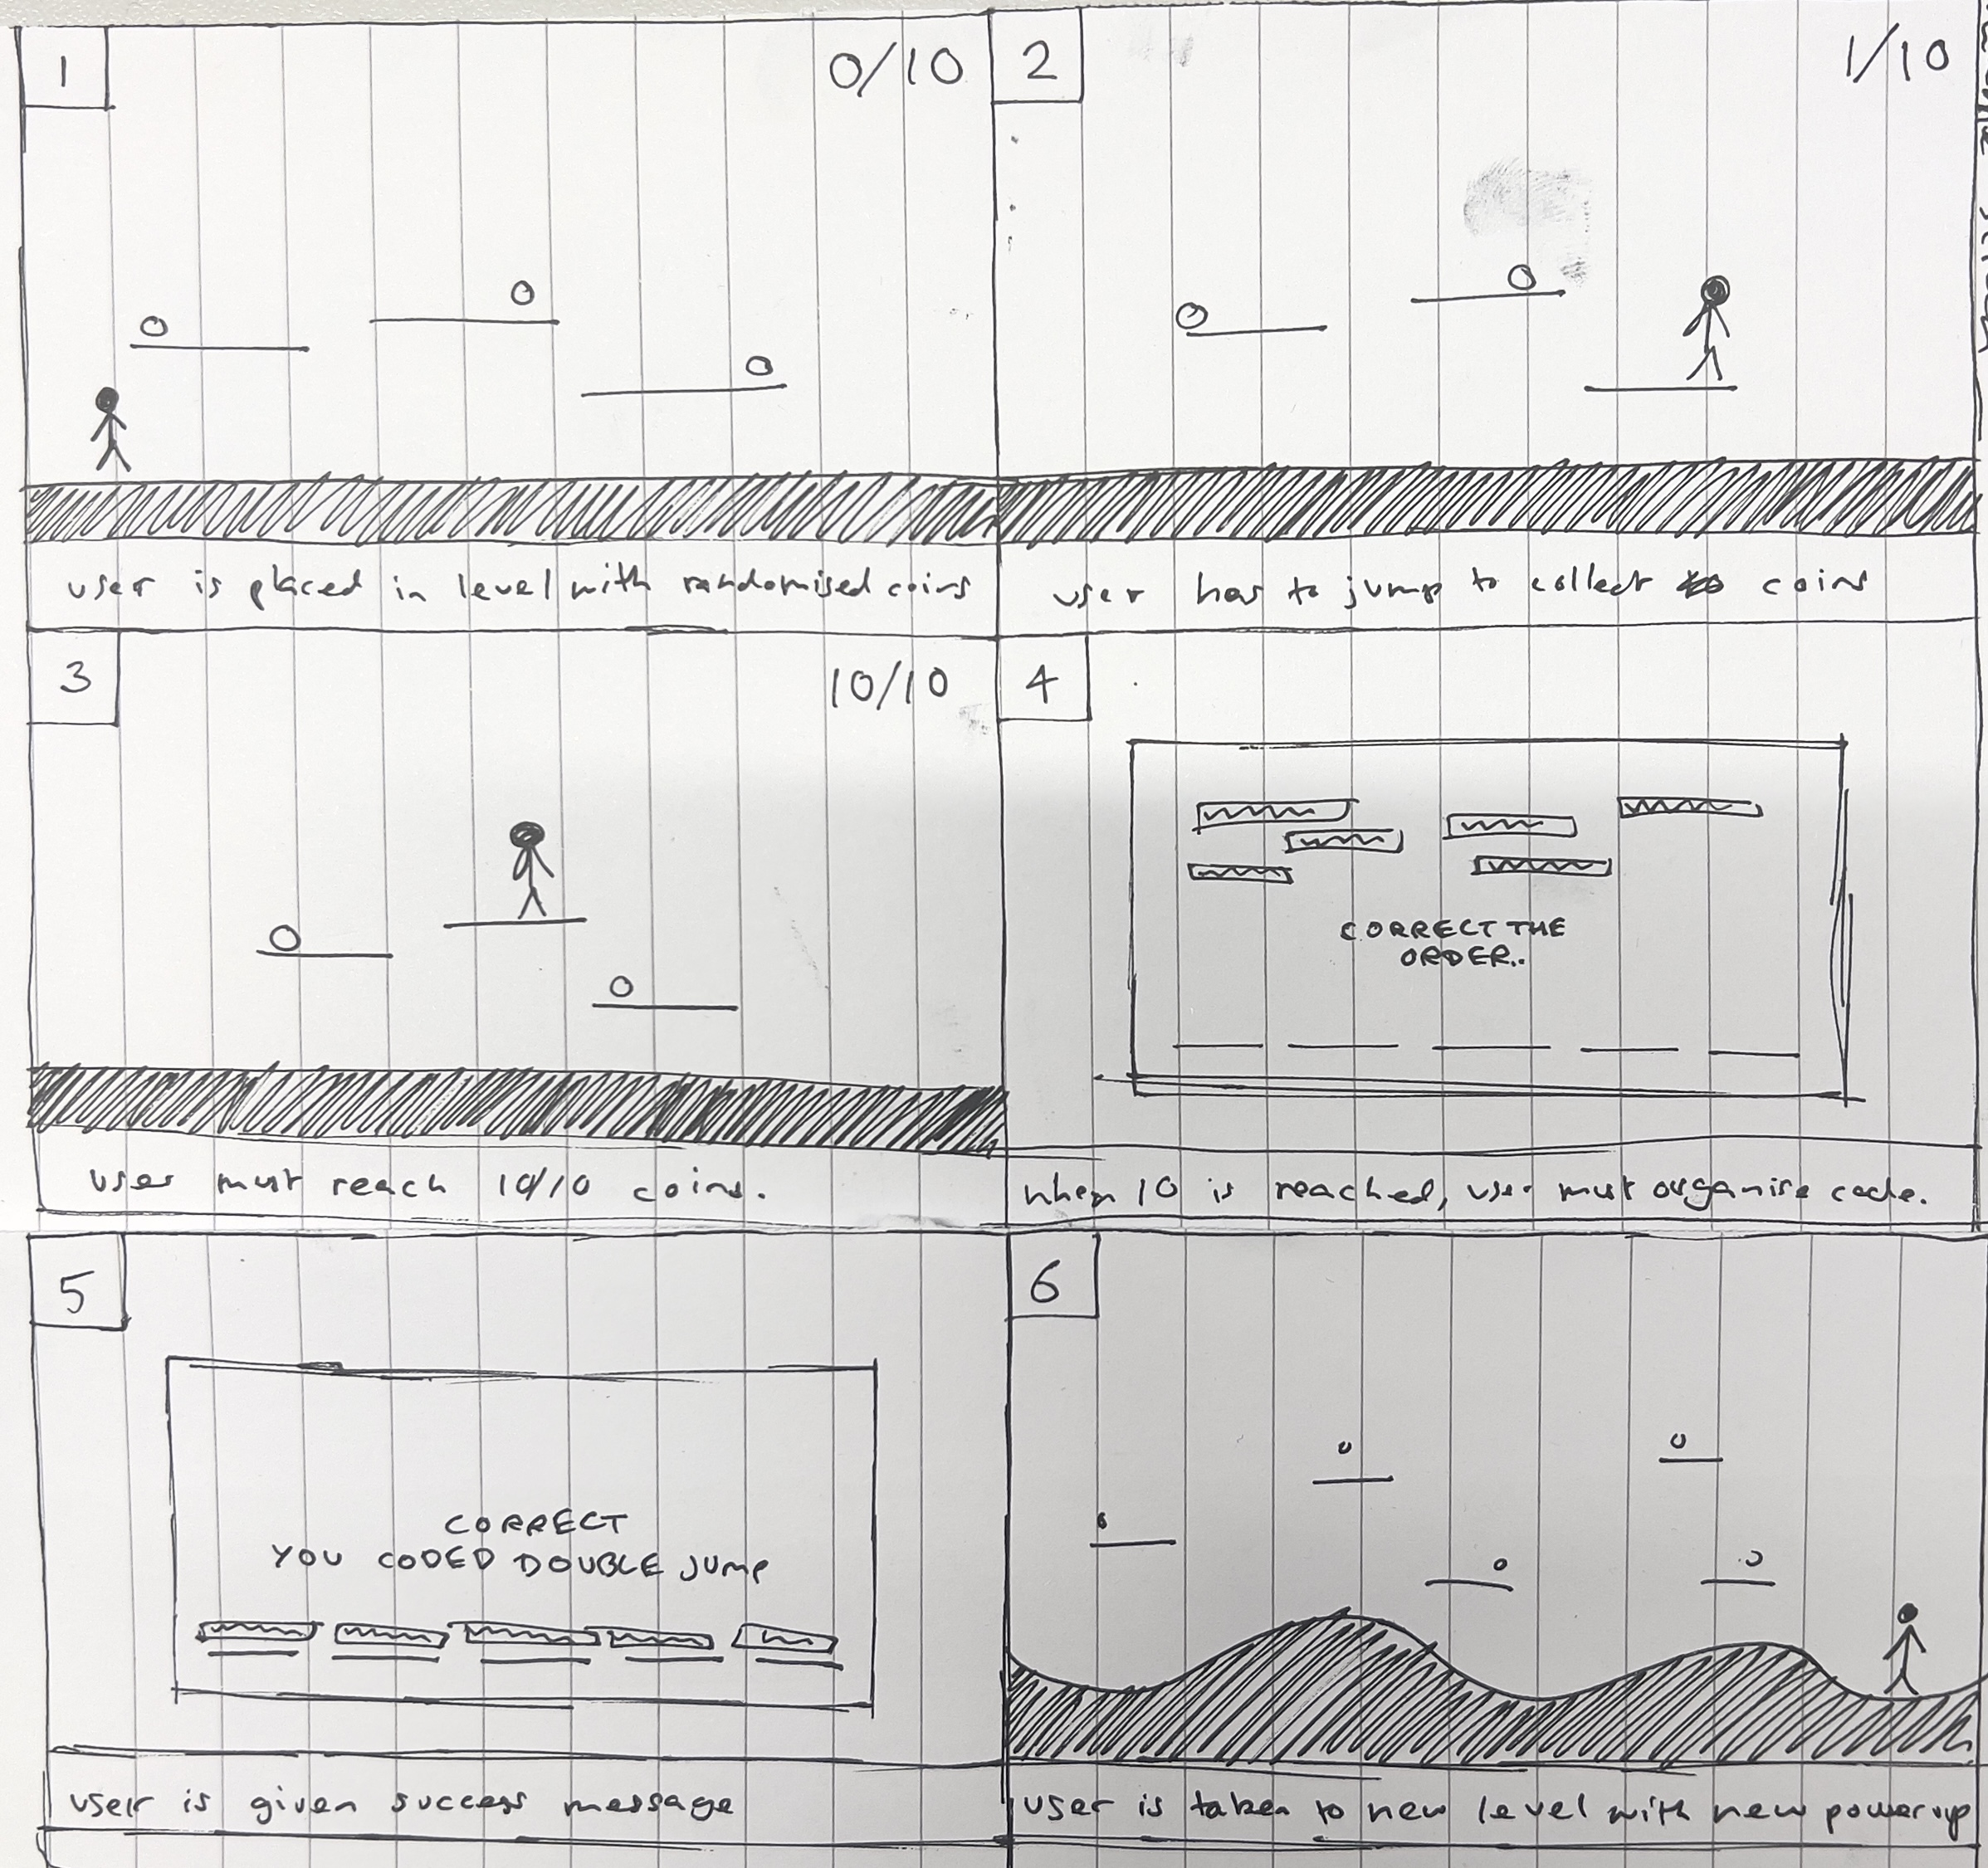 1
0/10
user is placed in level with randomised coins
2
1/10
user has to jump to collect coins
3
10/10
user must reach 10/10 coins.
4
CORRECT THE
ORDER..
when 10 is reached, user must organise code.
5
CORRECT
YOU CODED DOUBLE JUMP
user is given success message
6
user is taken to new level with new powerup